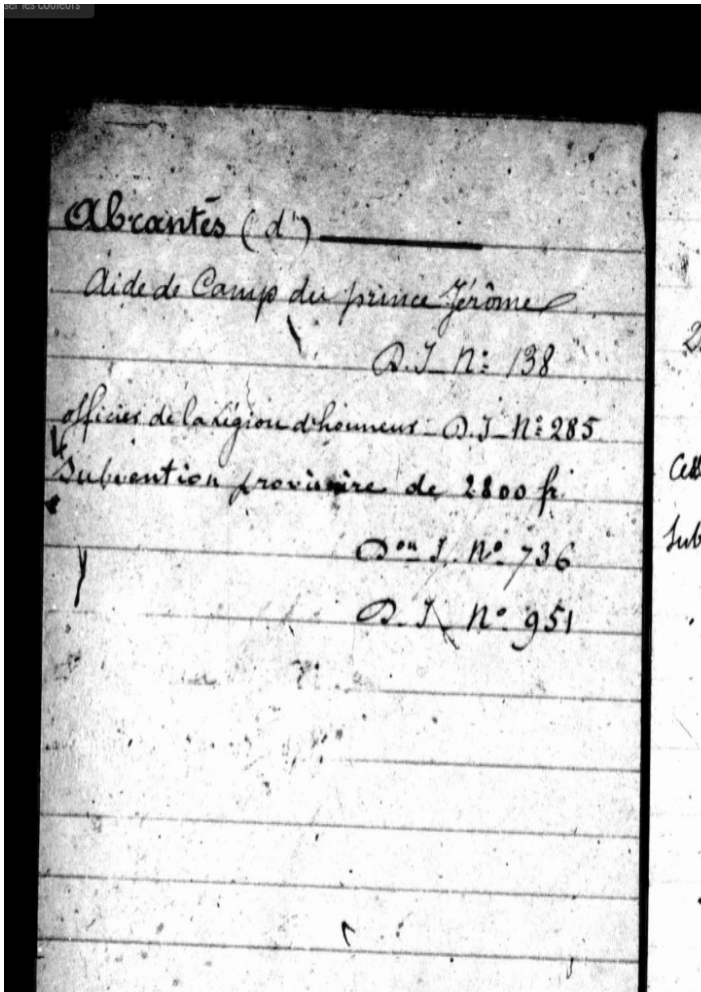 Abrantés (d')
Aide de Camp du prince Jérôme
D. I. N° 138
officier de la Légion d'honneur - D. I. N° 285
Subvention provisoire de 2800 fr.
Don I. N° 736
D. I. N° 951
ser les couleurs
2
Cell
Sub